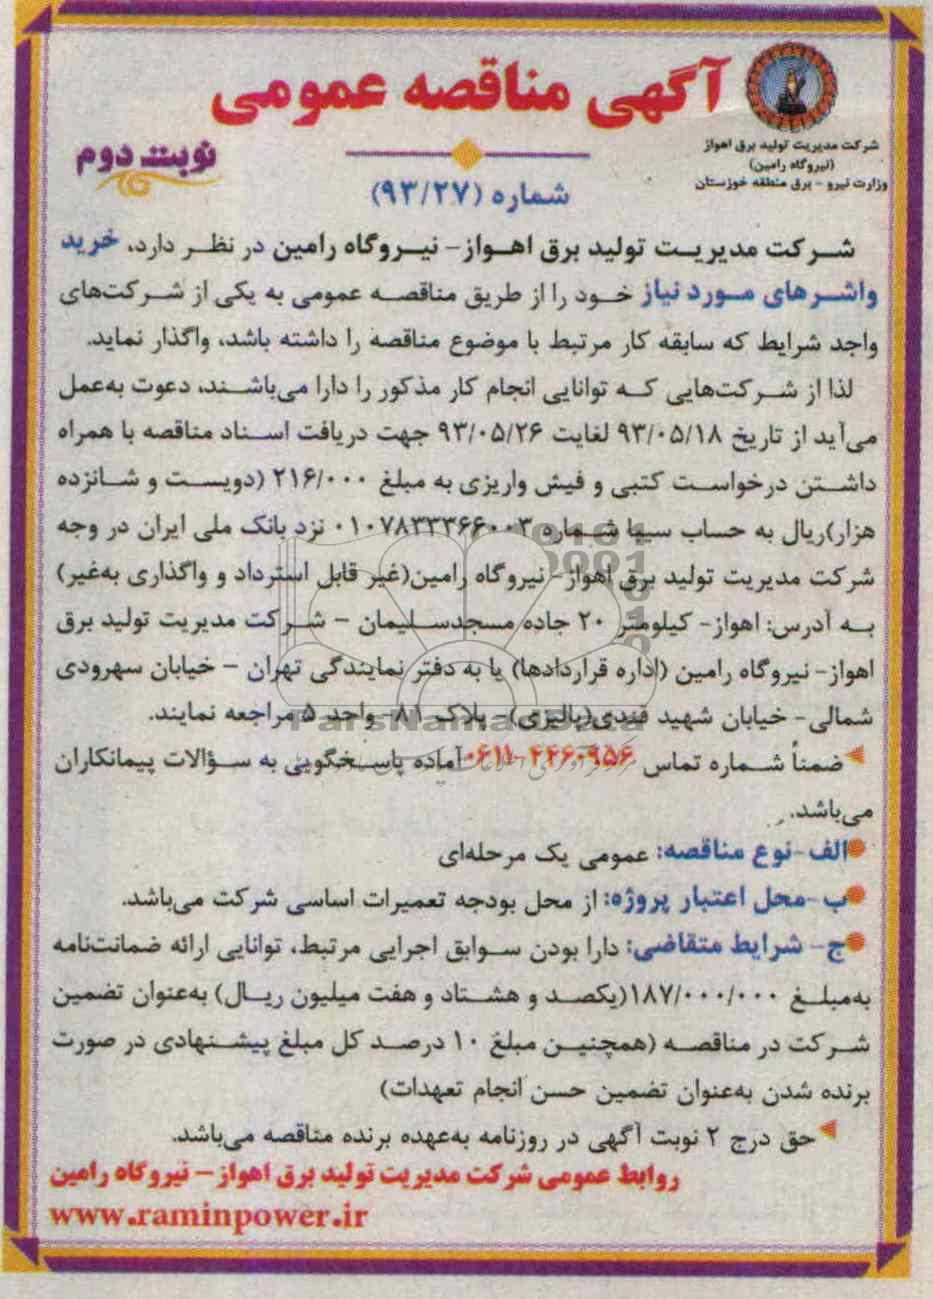 آگهی مناقصه عمومی
شرکت مدیریت تولید برق اهواز
(نیروگاه رامین)
وزارت نیرو - برق منطقه خوزستان
نوبت دوم
شماره (۹۳/۲۷)
شرکت مدیریت تولید برق اهواز- نیروگاه رامین در نظر دارد، خرید
واشرهای مورد نیاز خود را از طریق مناقصه عمومی به یکی از شرکت‌های
واجد شرایط که سابقه کار مرتبط با موضوع مناقصه را داشته باشد، واگذار نماید.
لذا از شرکت‌هایی که توانایی انجام کار مذکور را دارا می‌باشند، دعوت به‌عمل
می‌آید از تاریخ ۹۳/۰۵/۱۸ لغایت ۹۳/۰۵/۲۶ جهت دریافت اسناد مناقصه با همراه
داشتن درخواست کتبی و فیش واریزی به مبلغ ۲۱۶/۰۰۰ (دویست و شانزده
هزار)ریال به حساب سیبا شماره ۰۱۰۷۸۳۳۳۶۶۰۰۳ نزد بانک ملی ایران در وجه
شرکت مدیریت تولید برق اهواز- نیروگاه رامین(غیر قابل استرداد و واگذاری به‌غیر)
به آدرس: اهواز- کیلومتر ۲۰ جاده مسجدسلیمان - شرکت مدیریت تولید برق
اهواز- نیروگاه رامین (اداره قراردادها) یا به دفتر نمایندگی تهران - خیابان سهرودی
شمالی- خیابان شهید قندی(پالیزی)- پلاک ۸۱- واحد ۵ مراجعه نمایند.
ParsNamadData
ضمناً شماره تماس ۲۲۶۰۹۵۶-۰۶۱۱ آماده پاسخگویی به سؤالات پیمانکاران
می‌باشد.
الف-نوع مناقصه: عمومی یک مرحله‌ای
ب-محل اعتبار پروژه: از محل بودجه تعمیرات اساسی شرکت می‌باشد.
ج- شرایط متقاضی: دارا بودن سوابق اجرایی مرتبط، توانایی ارائه ضمانت‌نامه
به‌مبلغ ۱۸۷/۰۰۰/۰۰۰(یکصد و هشتاد و هفت میلیون ریال) به‌عنوان تضمین
شرکت در مناقصه (همچنین مبلغ ۱۰ درصد کل مبلغ پیشنهادی در صورت
برنده شدن به‌عنوان تضمین حسن انجام تعهدات)
حق درج ۲ نوبت آگهی در روزنامه به‌عهده برنده مناقصه می‌باشد.
روابط عمومی شرکت مدیریت تولید برق اهواز- نیروگاه رامین
www.raminpower.ir